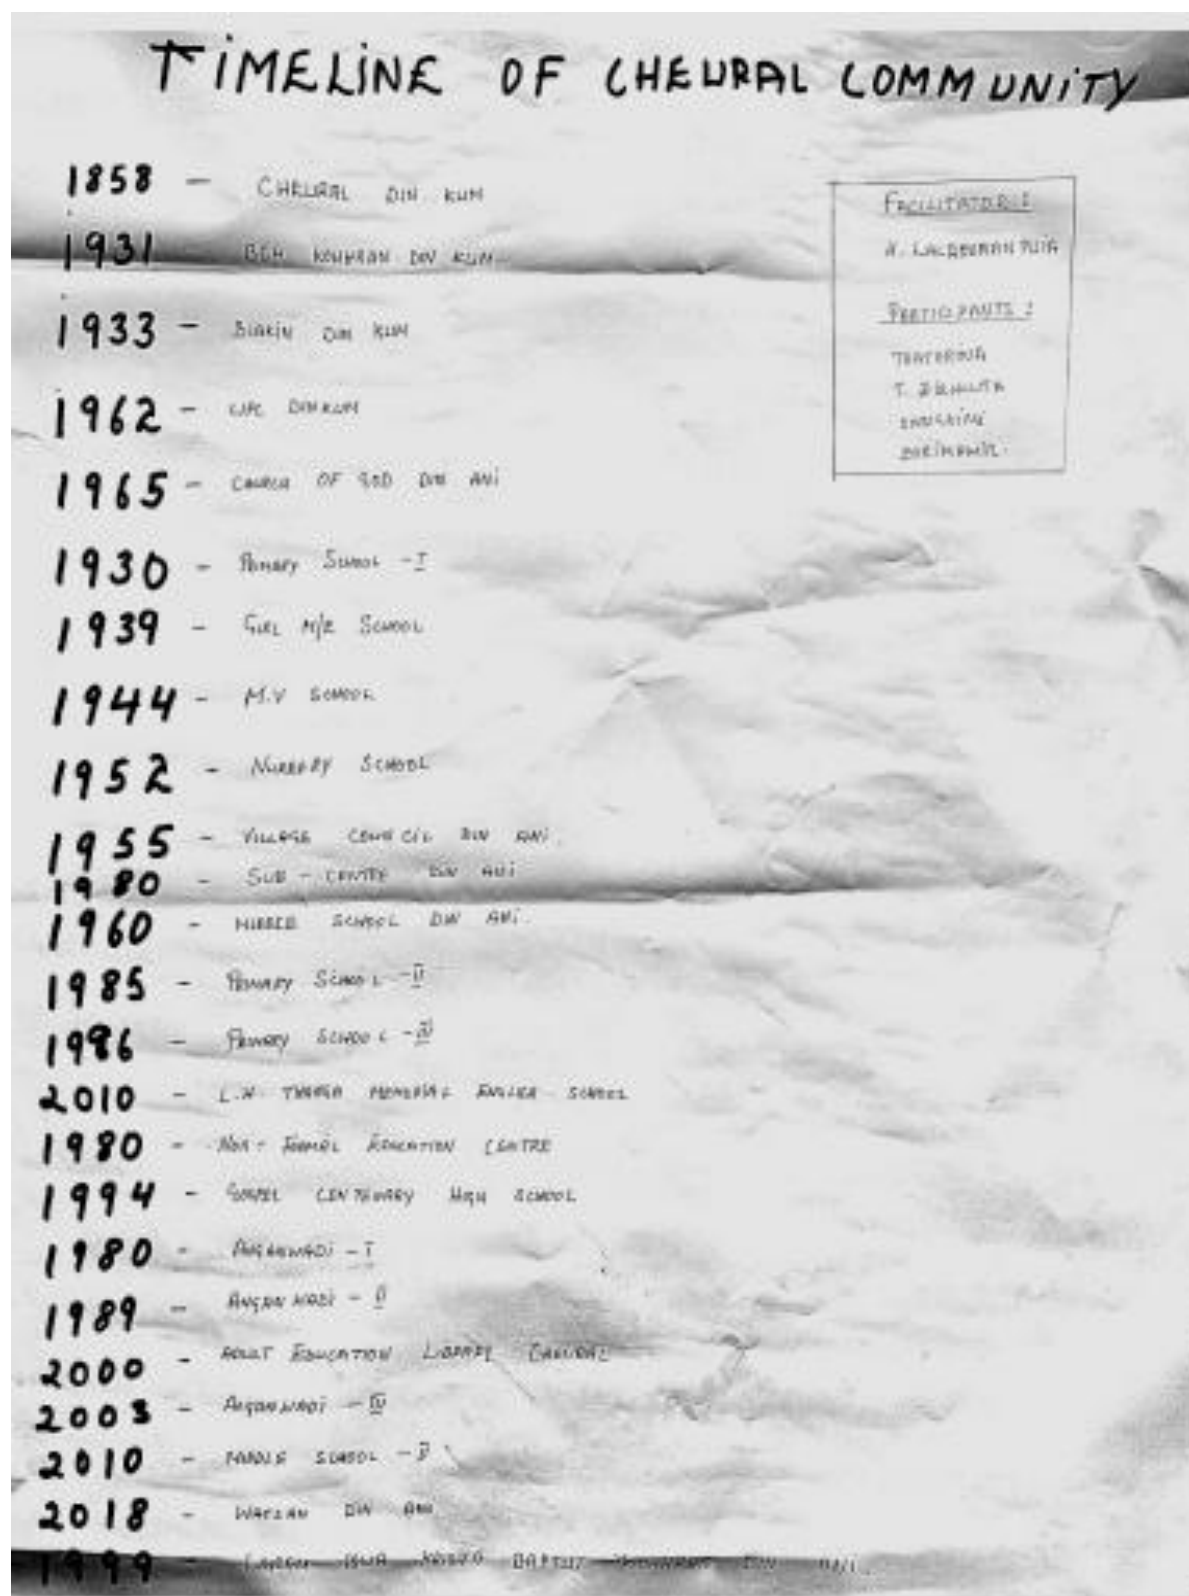 TIMELINE OF CHEURAL COMMUNITY
1858 - CHEURAL DIN KUM
1931 - BCM KOHHRAN DIN KUM
1933 - BIAKIN DIN KUM
1962 - DIN KUM
1965 - CHURCH OF GOD DIN ANI
1930 - PRIMARY SCHOOL - I
1939 - GIRL M/E SCHOOL
1944 - M.V SCHOOL
1952 - NURSERY SCHOOL
1955 - VILLAGE COUNCIL DIN ANI.
1980 - SUB - CENTRE DIN ANI
1960 - MIDDLE SCHOOL DIN ANI.
1985 - PRIMARY SCHOOL - II
1986 - PRIMARY SCHOOL -
2010 - L.H. MEMORIAL ENGLISH SCHOOL
1980 - NON - FORMAL EDUCATION CENTRE
1994 - GOSPEL CENTENARY HIGH SCHOOL
1980 - ANGANWADI - I
1989 - ANGANWADI - II
2000 - ADULT EDUCATION LIBRARY CHEURAL
2003 - ANGANWADI -
2010 - MIDDLE SCHOOL - II
2018 - DIN ANI
1999 - BAPTIST DIN ANI.
FACILITATORS:
PARTICIPANTS :